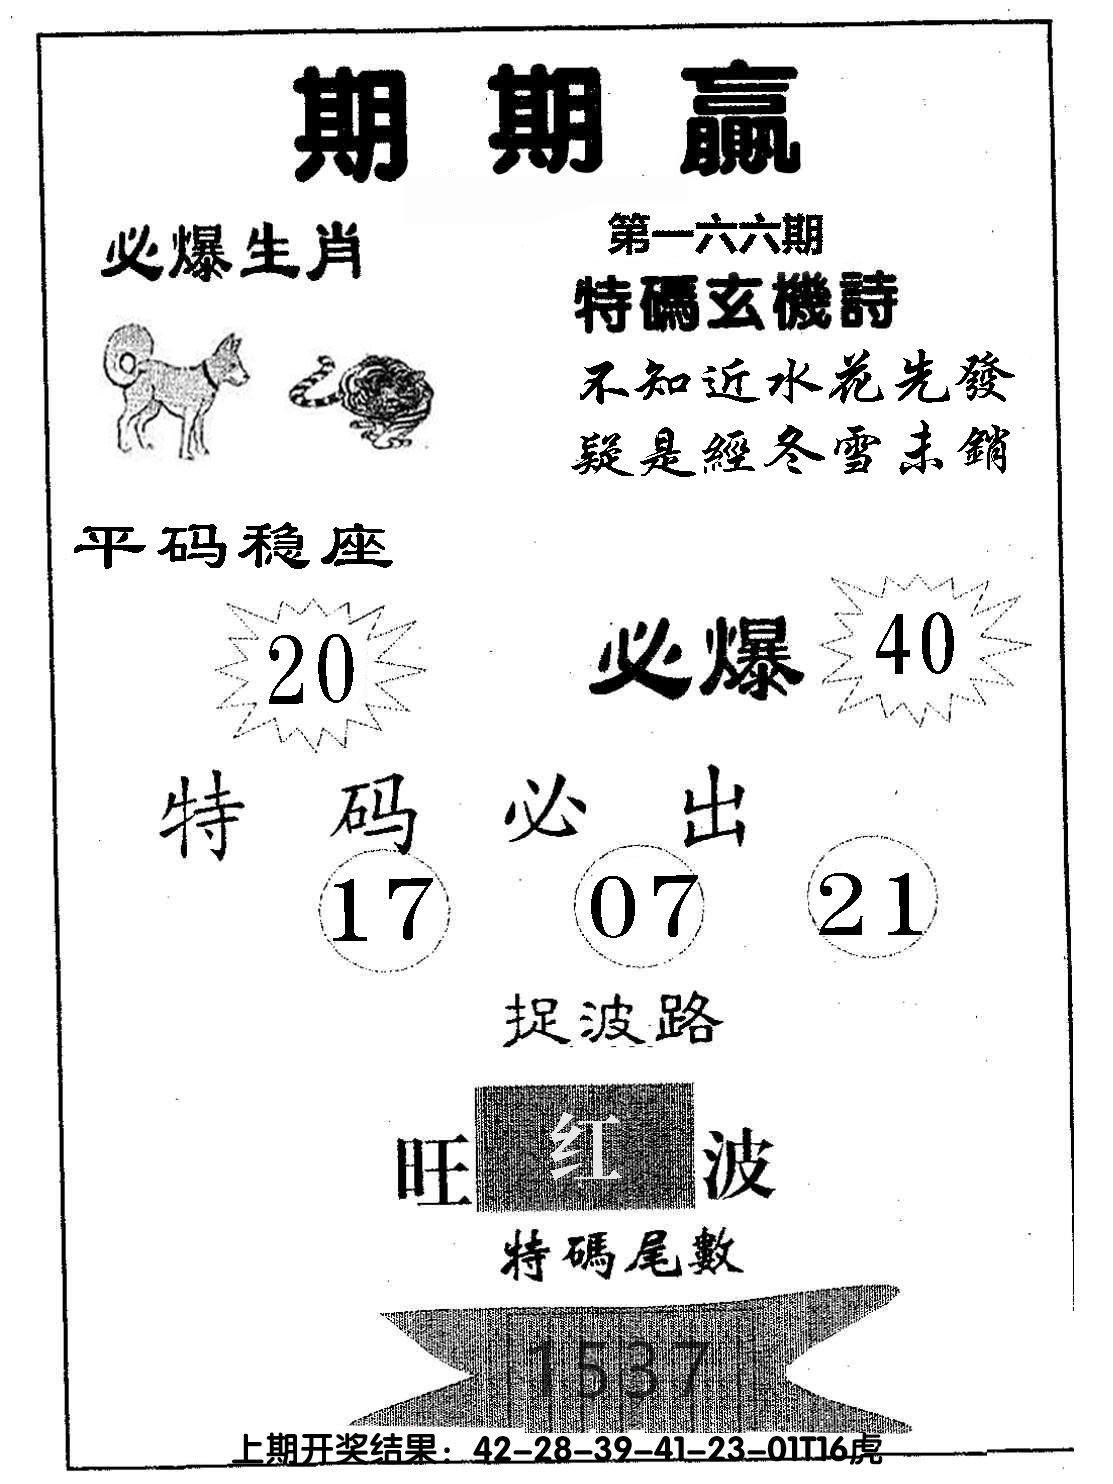 期期赢
必爆生肖
第一六六期
特碼玄機詩
不知近水花先發
疑是經冬雪未銷
平码稳座
20
必爆 40
特码必出
17 07 21
捉波路
旺红波
特碼尾數
1537
上期开奖结果：42-28-39-41-23-01T16虎